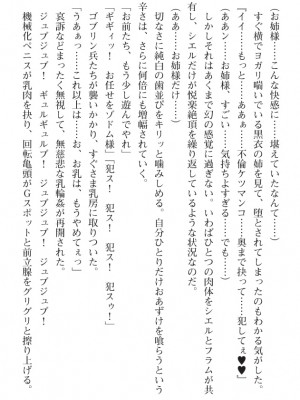 お姉様……こんな快感に……堪えていたなんて……)
すぐ横でヨガリ喘いでいる黒衣の姉を見て、堕とされてしまったのもわかる気がした。
「イイ……もっと……ああぁ……不倫ケツマンコ……奥まで抉って……犯してぇ♥♥」
(ああ……お姉様、すごい……気持ちよすぎる……でも……)
しかしそれはあくまで幻の感覚に過ぎない。いわばひとつの肉体をシエルとフラムが共
有し、シエルだけが悦楽絶頂を繰り返しているような状況なのだ。
(ああ……お姉様だけ……)
切なさに純白の歯並びをキリッと噛みしめる。自分ひとりだけおあずけを喰らうという
辛さは、さらに何倍にも増幅されていく。
「お前たち、もう少し遊んでやれ」
「ギギィッ！　お任せをゾドム様」「犯ス！　犯ス！　犯スゥ！」
ゴブリン兵たちが襲いかかり、すぐさま乳房に取りついた。
「うあぁっ……これ以上は……お、お乳は、もうやめてぇっ」
哀訴などまったく無視して、無慈悲な乳輪姦が再開された。
ジュブジュブ！　ギュルギュルブ！　ジュブジュブ！　ジュブジュブ！
機械化ペニスが乳肉を抉り、回転亀頭がGスポットと前立腺をグリグリと擦り上げる。